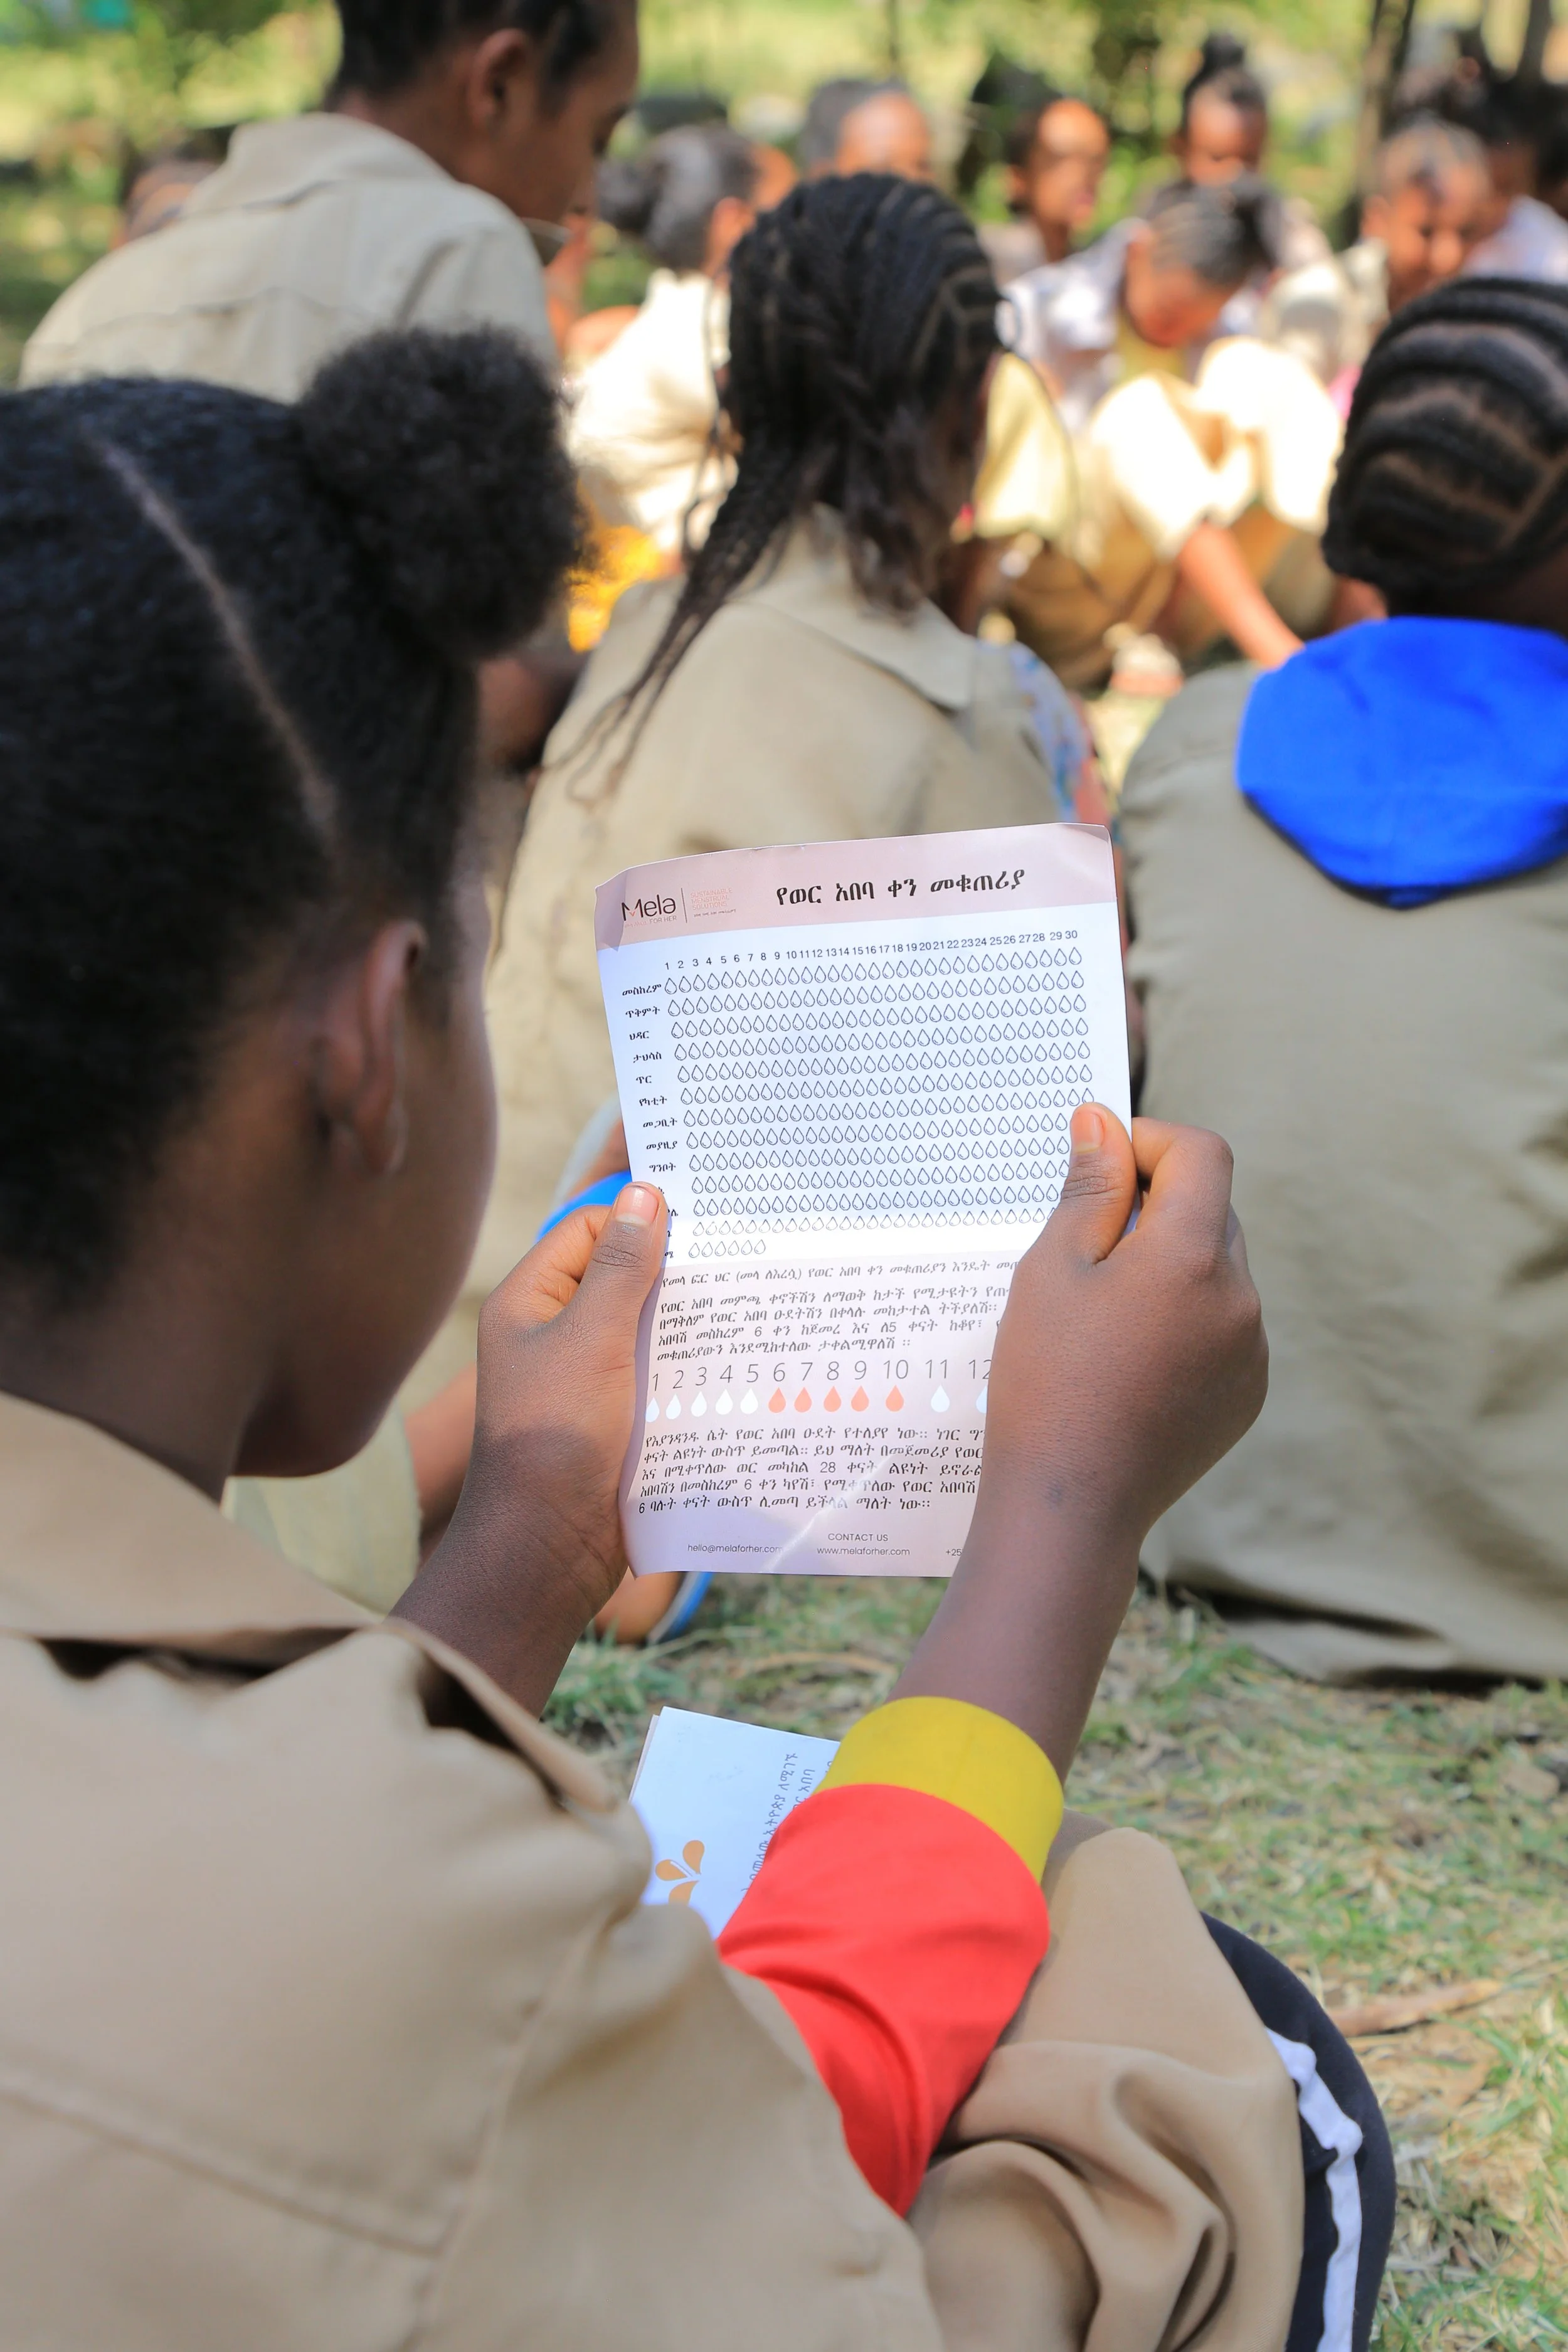 Mela
FOR HER
የወር አበባ ቀን መቁጠሪያ
1 2 3 4 5 6 7 8 9 10 11 12 13 14 15 16 17 18 19 20 21 22 23 24 25 26 27 28 29 30
መስከረም
ጥቅምት
ህዳር
ታህሳስ
ጥር
የካቲት
መጋቢት
መያዚያ
ግንቦት
የመላ ፎር ሀር (መላ ለእረሷ) የወር አበባ ቀን መቁጠሪያን እንዴት
የወር አበባ መምጫ ቀኖችሽን ለማወቅ ከታች የሚታዩትን
በማቅለም የወር አበባ ዑደትሽን በቀላሉ መከታተል ትችያለሽ።
አበባሽ መስከረም 6 ቀን ከጀመረ እና ለ5 ቀናት ከቆየ፣
መቁጠሪያውን እንደሚከተለው ታቀልሚዋለሽ ።
1 2 3 4 5 6 7 8 9 10 11 12
የእያንዳንዱ ሴት የወር አበባ ዑደት የተለያየ ነው። ነገር
ቀናት ልዩነት ውስጥ ይመጣል። ይህ ማለት በመጀመሪያ የወር
እና በሚቀጥለው ወር መካከል 28 ቀናት ልዩነት
አበባሽን በመስከረም 6 ቀን ካየሽ፣ የሚቀጥለው የወር አበባሽ
6 ባሉት ቀናት ውስጥ ሊመጣ ይችላል ማለት ነው።
CONTACT US
hello@melaforher.com www.melaforher.com